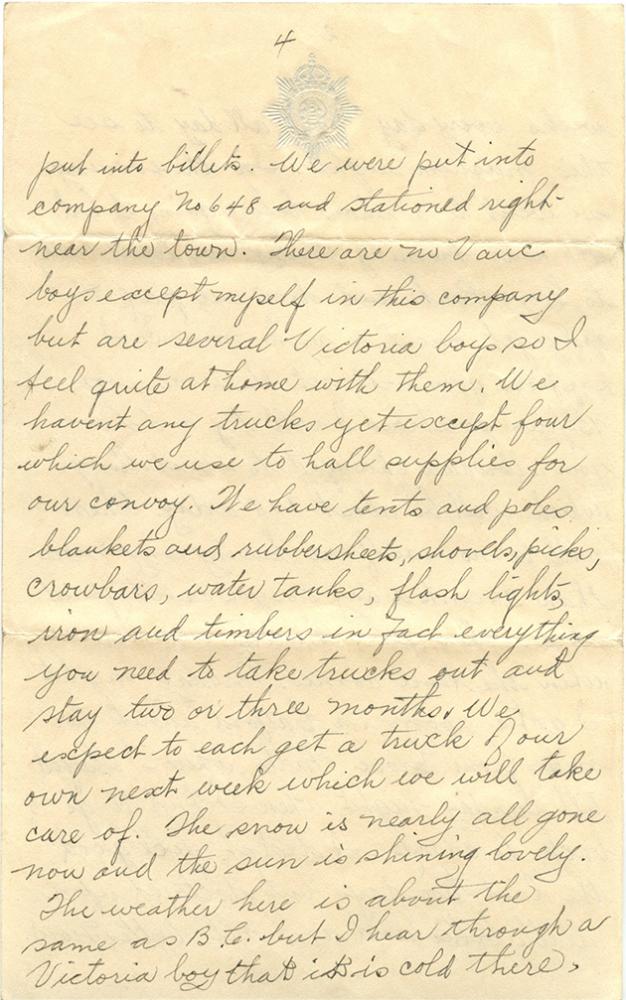 4
put into billets. We were put into
company No 648 and stationed right
near the town. There are no Vanc
boys except myself in this company
but are several Victoria boys so I
feel quite at home with them. We
havent any trucks yet except four
which we use to hall supplies for
our convoy. We have tents and poles
blankets and rubbersheets, shovels, picks,
crowbars, water tanks, flash lights,
iron and timbers in fact everything
you need to take trucks out and
stay two or three months. We
expect to each get a truck of our
own next week which we will take
care of. The snow is nearly all gone
now and the sun is shining lovely.
The weather here is about the
same as B.C. but I hear through a
Victoria boy that it is cold there.